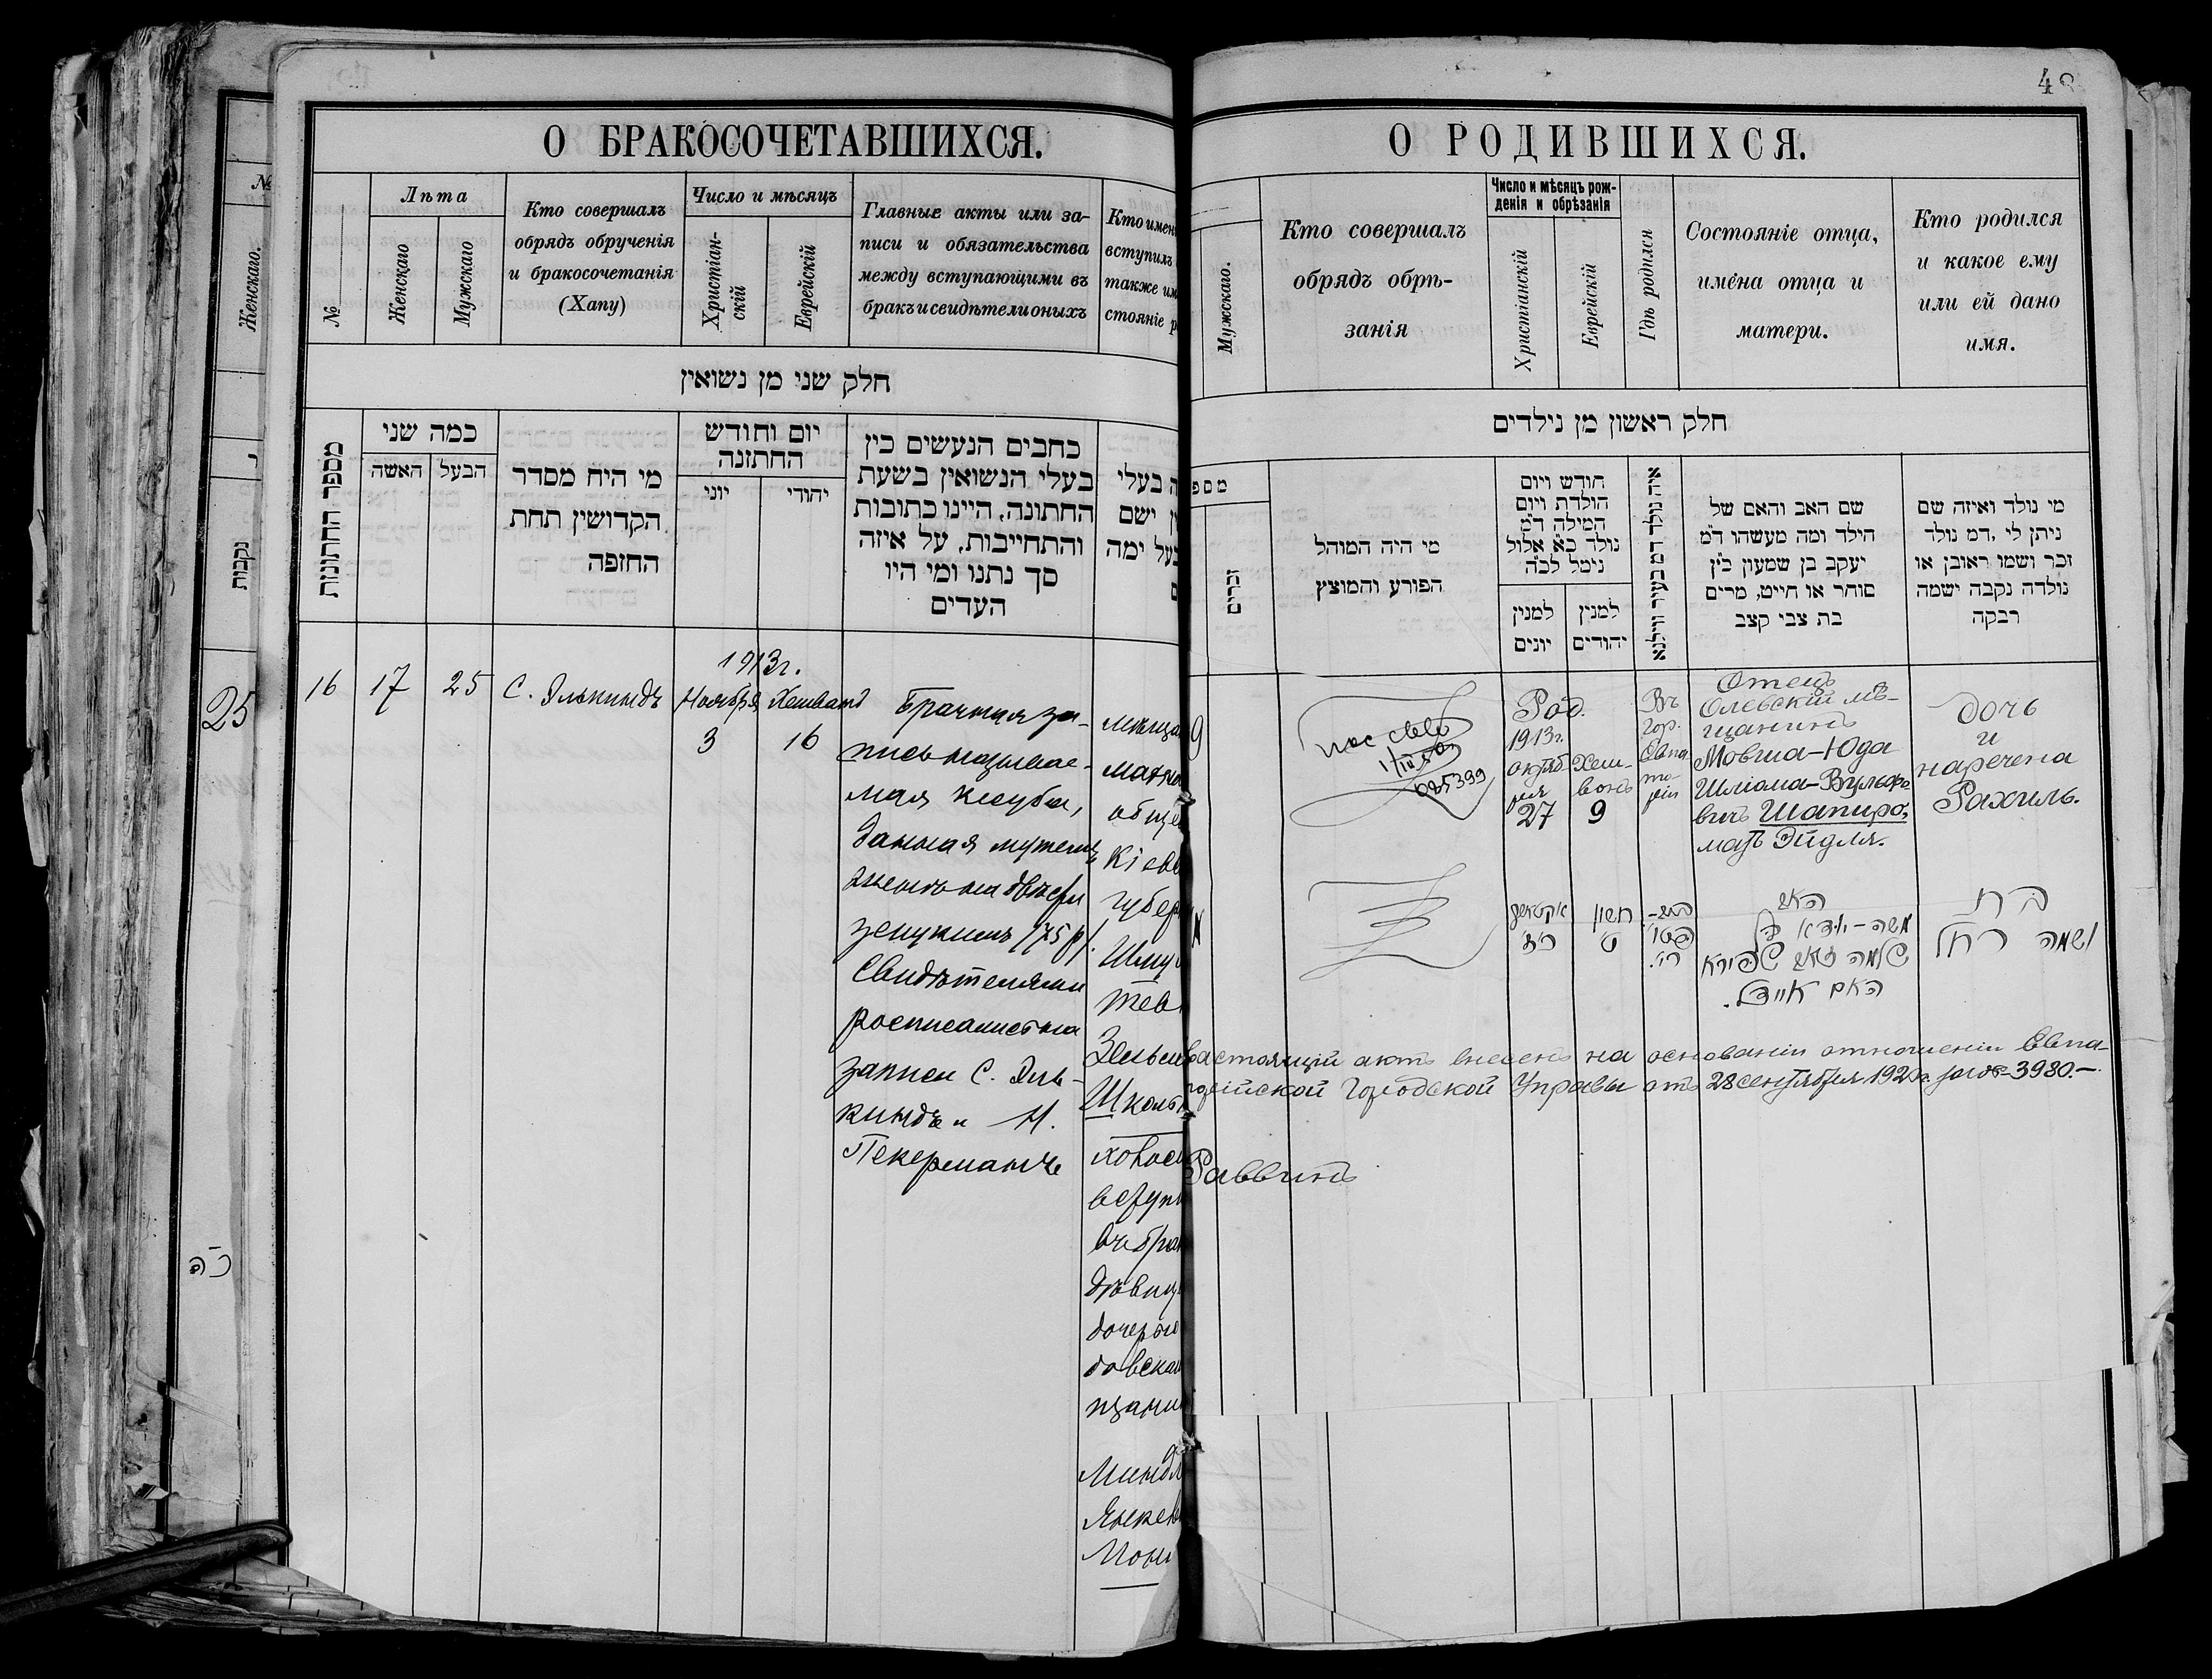 О БРАКОСОЧЕТАВШИХСЯ.
№
Лѣта
Женскаго
Мужскаго
Кто совершалъ
обрядъ обрученія
и бракосочетанія
(Хапу)
Число и мѣсяцъ
Христіан-
скій
Еврейскій
Главные акты или за-
писи и обязательства
между вступающими въ
бракъ и свидѣтели оныхъ
Кто имен
вступилъ
также им
стояніе р
חלק שני מן נשואין
מספר החתונות
כמה שני
האשה
הבעל
מי היח מסדר
הקדושין תחת
החופה
יום וחודש
החתונה
יוני
יהודי
כתבים הנעשים בין
בעלי הנשואין בשעת
החתונה, היינו כתובות
והתחייבות, על איזה
סך נתנו ומי היו
העדים
ה בעלי
ן ישם
בעל ימה
ם
16
17
25
С. Элькиндъ
1913г.
Ноября
3
Хешвана
16
Брачная за-
пись называе-
мая ксуба,
данная мужемъ
женѣ на двѣсти
зекукимъ /75 р/.
Свидѣтелями
росписались на
записи С. Эль-
киндъ и Н.
Пекерманъ
мѣща
обще
Кіев
губер
Шму
Зельм
Школь
вступ
въ бра
дѣвиц
дочерью
довска
щани
Янкев
№
Женскаго.
נקבות
25
כה
48
О РОДИВШИХСЯ.
Мужскаго.
Кто совершалъ
обрядъ обрѣ-
занія
Число и мѣсяцъ рож-
денія и обрѣзанія
Христіанскій
Еврейскій
Гдѣ родился
Состояніе отца,
имена отца и
матери.
Кто родился
и какое ему
или ей дано
имя.
חלק ראשון מן נילדים
מספ
זכרים
מי היה המוהל
הפורע והמוצץ
חודש ויום
הולדת ויום
המילה ד"מ
נולד כ"א אלול
נימל לכ"ה
למנין
יונים
למנין
יהודים
איה נולד דמ בעיר ווילנא
שם האב והאם של
הילד ומה מעשהו ד"מ
יעקב בן שמעון כ"ץ
סוחר או חייט, מרים
בת צבי קצב
מי נולד ואיזה שם
ניתן לי, דמ נולד
זכר ושמו ראובן או
נולדה נקבה ישמה
רבקה
9
085399
Род.
1913г.
октяб-
ря
27
Хеш-
вонъ
9
Въ
гор.
Евпа
то-
ріи
Отецъ
Олевскій мѣ-
щанинъ
Мовша-Юда
Шліома-Вульфо
вичъ Шапиро,
мать Эйдля.
дочь
и
наречена
Рахиль.
חשון
ט
האב
משה-יודא בן
שלמה זאב שפירא
האם איידל.
בת
ושמה רחל
Настоящій актъ внесенъ на основаніи отношенія Евпа-
торійской Городской Управы отъ 28 сентября 1920г. за № 3980.-
Раввинъ